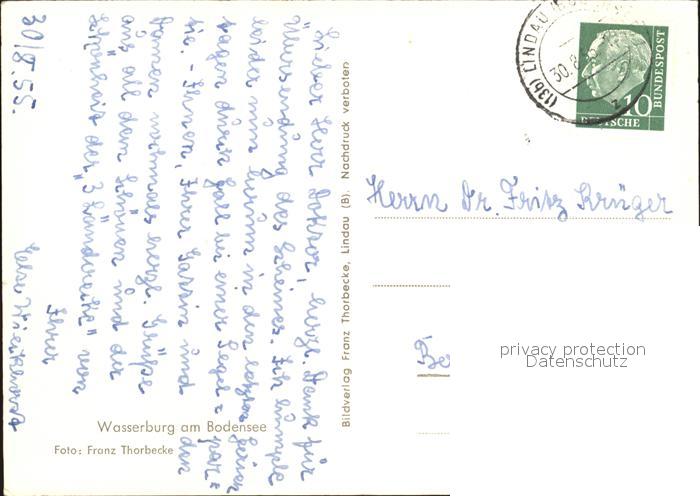 30/8.55.
Lieber Herr Doktor, herzl. Dank für
Übersendung des Scheines. Ich bumple
leider nun herum in den letzten Ferien
tagen dieser Fall bei einer Segel-par-
tie. - Ihnen, Ihrer Gattin und den
Damen nochmals herzl. Grüße
aus all dem Schönen und der
Schönheit des "3 Länderecks" von
Ihrer
Wasserburg am Bodensee
Foto: Franz Thorbecke
Bildverlag Franz Thorbecke, Lindau (B). Nachdruck verboten
(13b) LINDAU (BODENSEE)
30.8.
DEUTSCHE
BUNDESPOST
10
Herrn Dr. Fritz Krüger
Be
privacy protection
Datenschutz